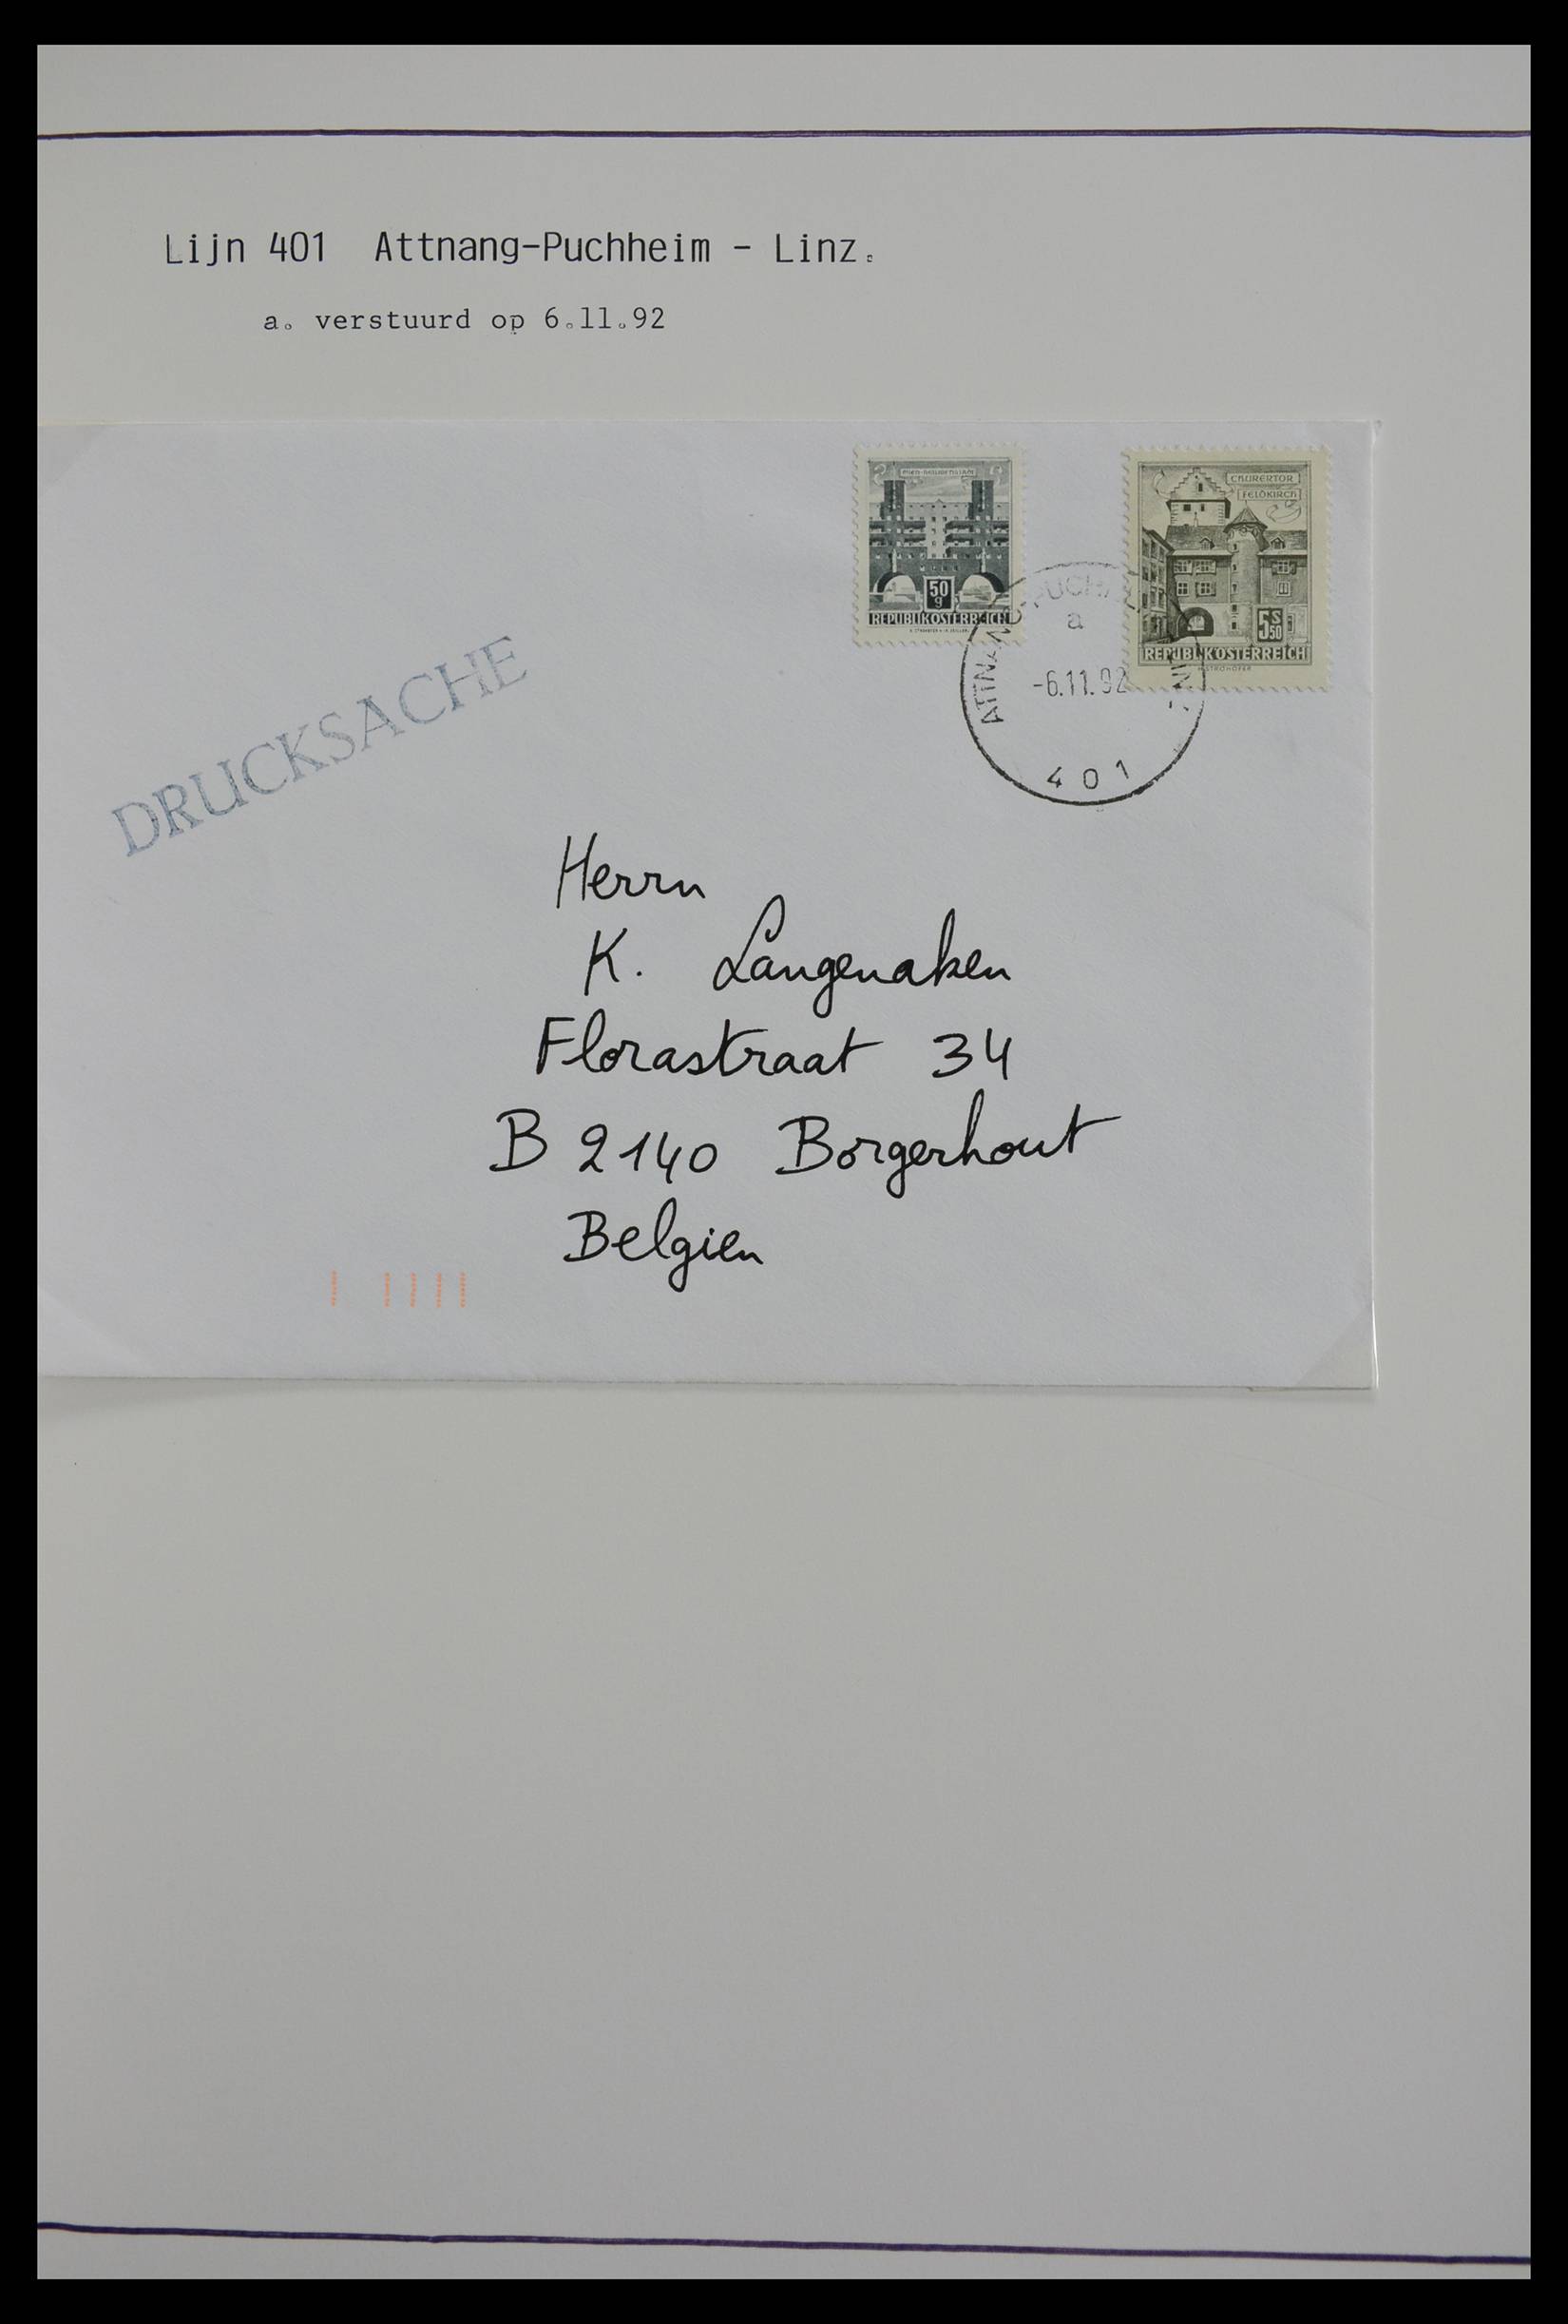 Lijn 401 Attnang-Puchheim - Linz.
a. verstuurd op 6.11.92
WIEN-HEILIGENSTADT
50
g
REPUBLIK ÖSTERREICH
CHURERTOR
FELDKIRCH
5S
50
REPUBLIK ÖSTERREICH
ATTNANG-PUCHHEIM
a
-6.11.92
401
DRUCKSACHE
Herrn
K. Langenaken
Florastraat 34
B 2140 Borgerhout
Belgien